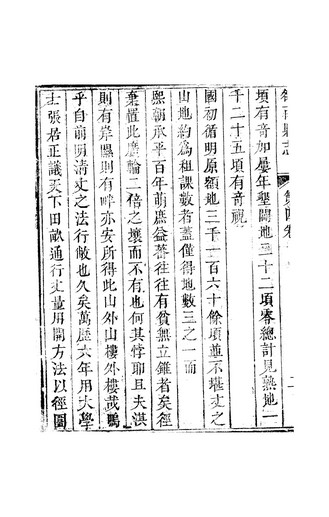 縣志
第四卷
頃有音加屢年墾闢地三十二頃零總計見熟地一
千二十五頃有音視
國初循明原額地三千一百六十餘頃並不堪丈之
山地約為租課數者蓋僅得地數三之一而
熙朝承平百年萌庶益蕃往往有貧無立錐者矣
棄置此廣輪二倍之壤而不有也何其悖耶且夫湛
則有岸隰則有畔亦安所得此山外山樓外樓哉鴨
乎自前明清丈之法行敝也久矣萬曆六年用大學
士張居正議天下田畝通行丈量用開方法以徑圍